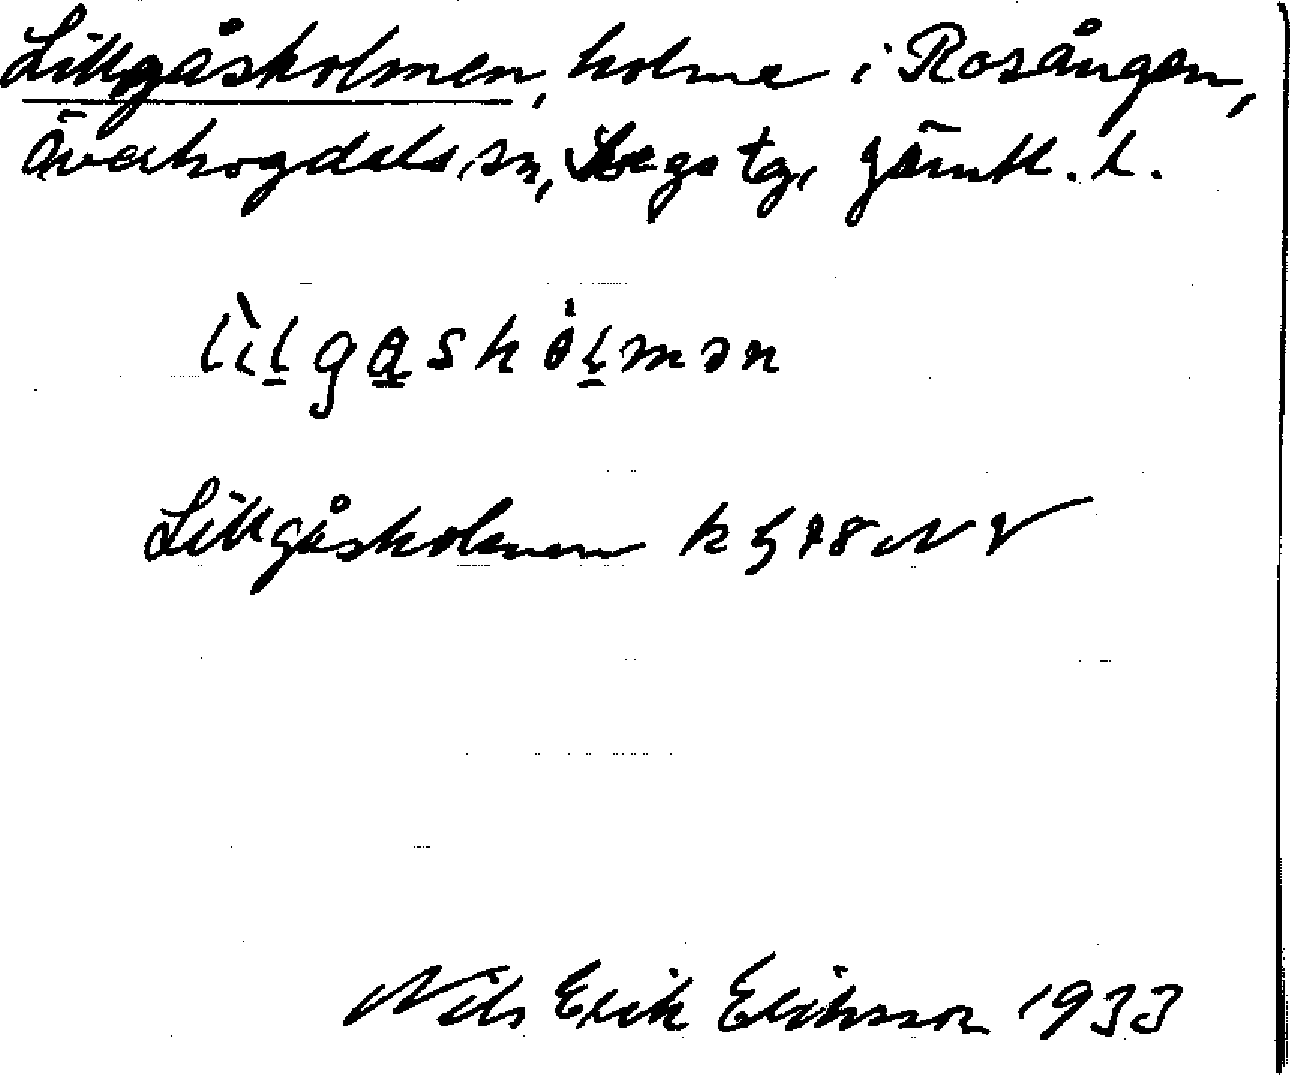 Lillgåsholmen, holme i Rosången,
Överhogdals sn, Hogs tg, Jämtl. l.
lìlgashòlmən
Lillgåsholmen k 578 NV
Nils Erik Eriksson 1933